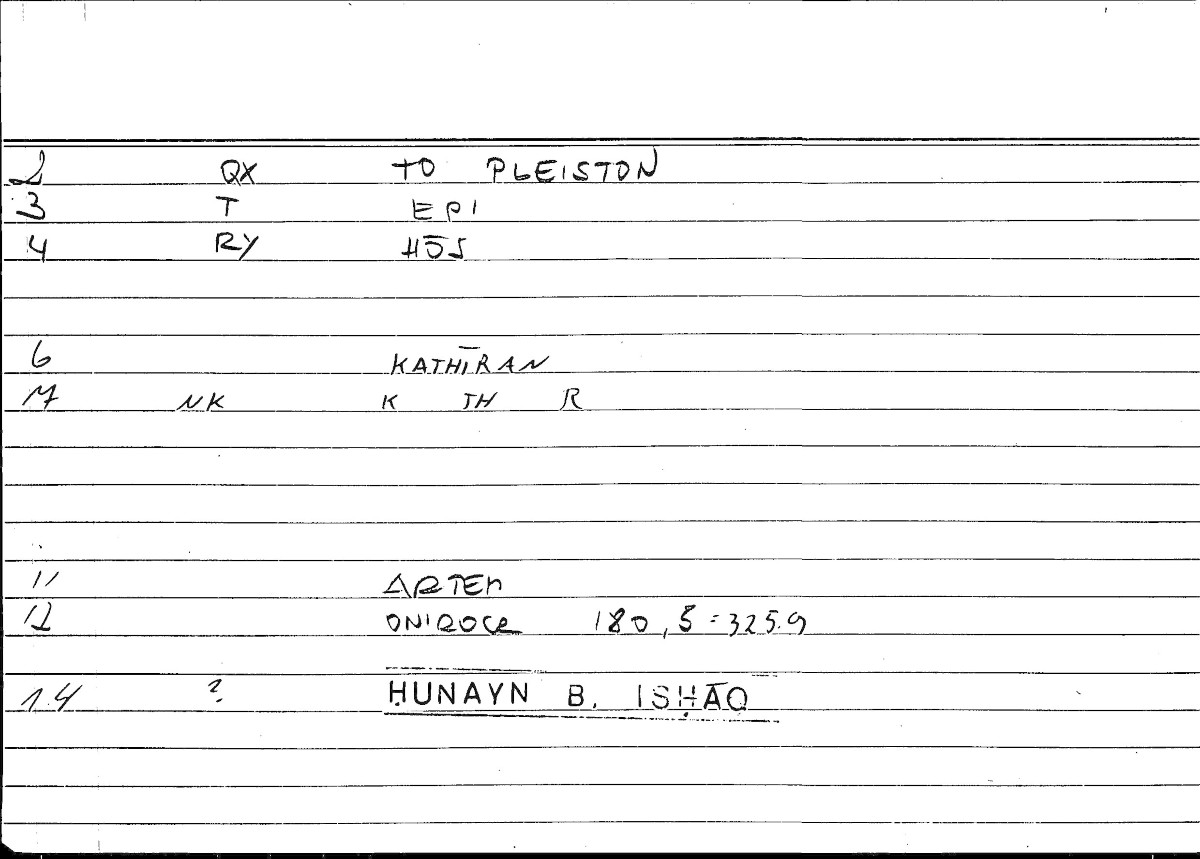 2 QX TO PLEISTON
3 T EPI
4 RY HŌS
6 KATHĪRAN
7 NK K TH R
11 ARTEM
12 ONIROCR 180,5=325.9
14 ? ḤUNAYN B. ISḤĀQ